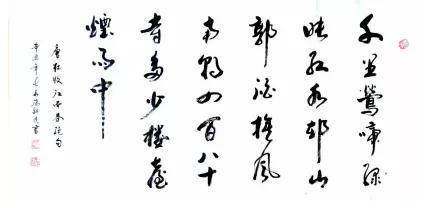 千里鶯啼綠
映紅水邨山
郭酒旗風
南朝四百八十
寺多少樓臺
煙雨中
唐杜牧江南春絕句